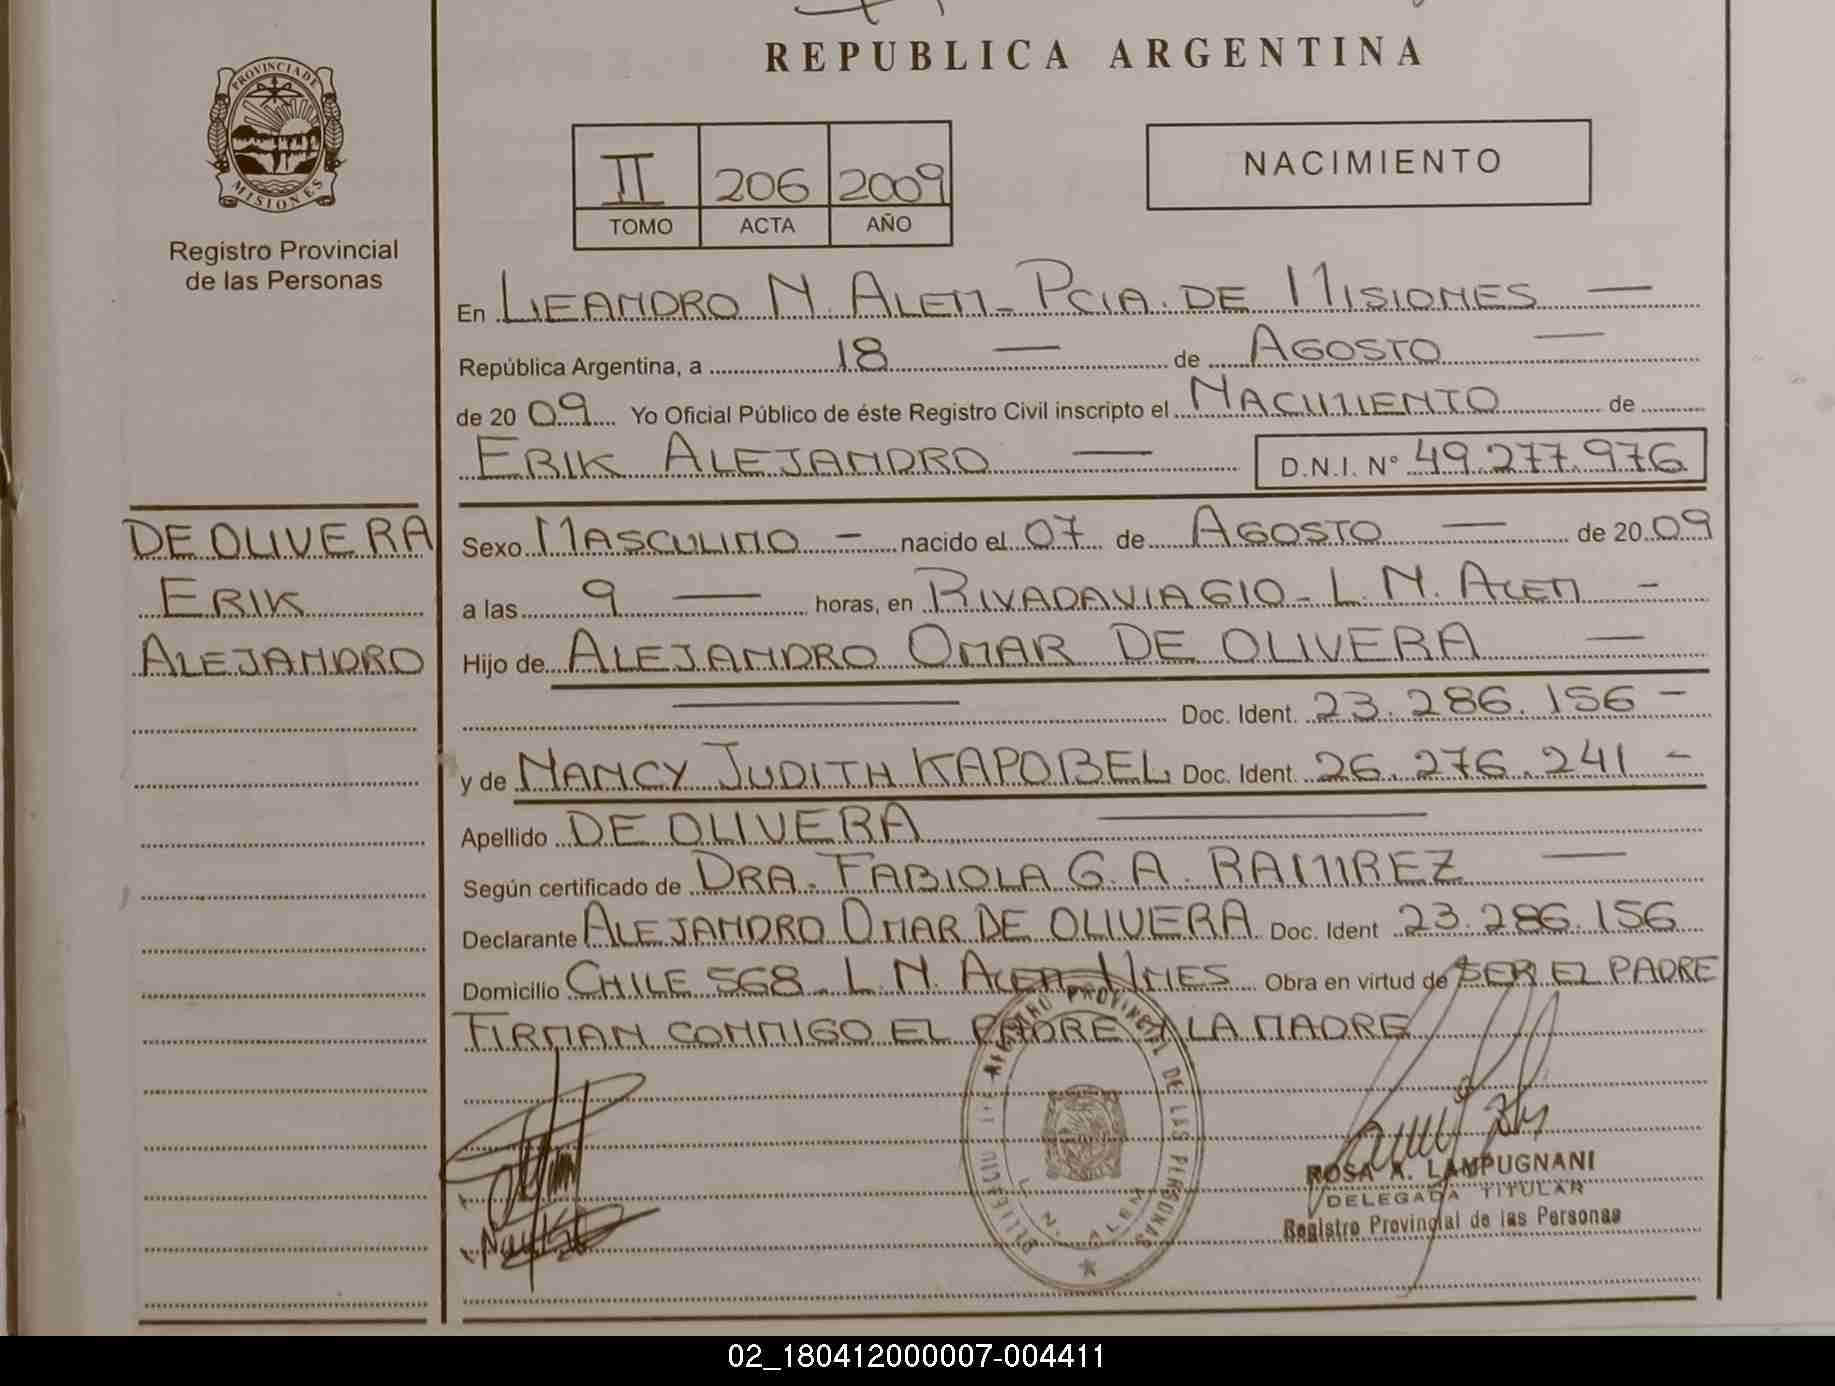 REPUBLICA ARGENTINA
PROVINCIA DE MISIONES
Registro Provincial
de las Personas
II 206 2009
TOMO ACTA AÑO
NACIMIENTO
En LEANDRO N. ALEM - PCIA. DE MISIONES —
República Argentina, a 18 — de AGOSTO —
de 20 09 Yo Oficial Público de éste Registro Civil inscripto el NACIMIENTO de
ERIK ALEJANDRO — D.N.I. N° 49.277.976
DE OLIVERA
ERIK
ALEJANDRO
Sexo MASCULINO - nacido el 07 de AGOSTO — de 20 09
a las 9 — horas, en RIVADAVIA 610 - L. N. ALEM -
Hijo de ALEJANDRO OMAR DE OLIVERA —
— Doc. Ident. 23.286.156 -
y de NANCY JUDITH KAPOBEL Doc. Ident. 26.276.241 -
Apellido DE OLIVERA —
Según certificado de DRA. FABIOLA G. A. RAMIREZ —
Declarante ALEJANDRO OMAR DE OLIVERA Doc. Ident 23.286.156
Domicilio CHILE 568 - L. N. ALEM - MNES Obra en virtud de SER EL PADRE
FIRMAN CONMIGO EL PADRE Y LA MADRE
REGISTRO PROVINCIAL DE LAS PERSONAS
L. N. ALEM
ROSA A. LAMPUGNANI
DELEGADA TITULAR
Registro Provincial de las Personas
02_180412000007-004411